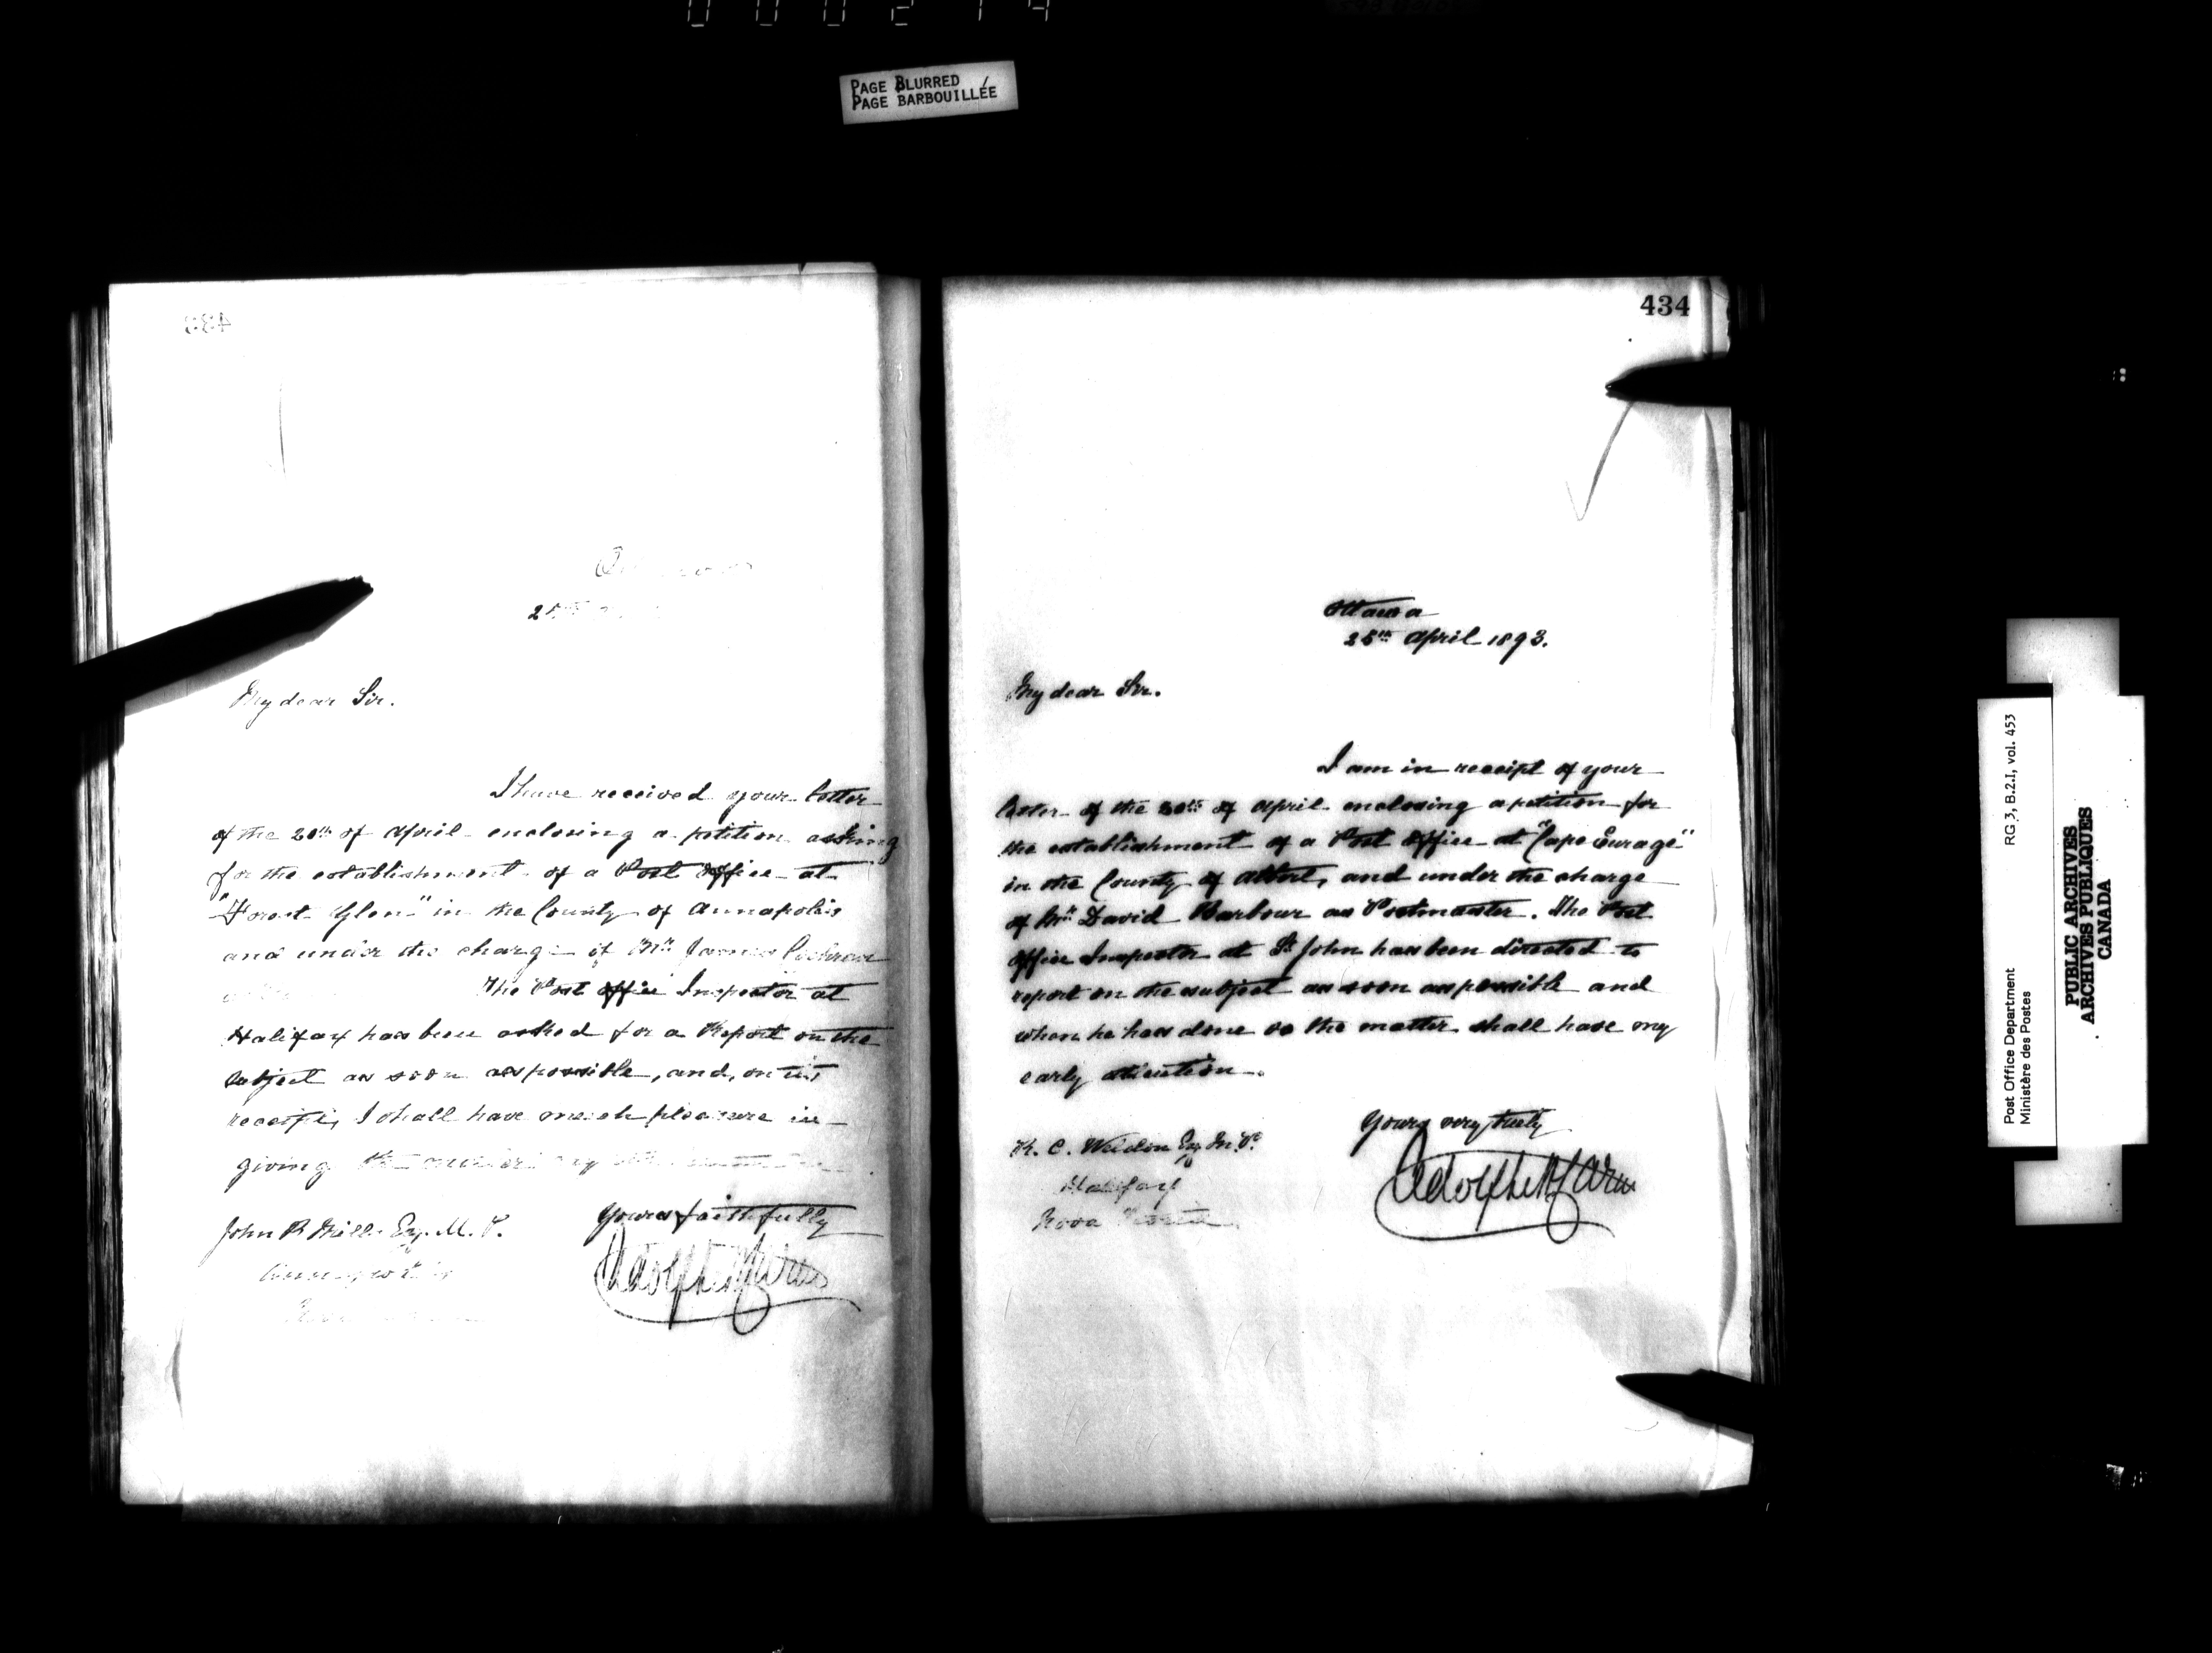 PAGE BLURRED
PAGE BARBOUILLÉE
433
My dear Sir.
I have received your letter
of the 20th of April enclosing a petition asking
for the establishment of a Post Office at
"Forest Glen" in the County of Annapolis
and under the charge of Mr James Cochran
The Post Office Inspector at
Halifax has been asked for a Report on the
subject as soon as possible, and, on its
receipt, I shall have much pleasure in
giving the matter my
Yours faithfully
John B Mills Esq. M.P.
434
Ottawa
25th April 1893.
My dear Sir.
I am in receipt of your
letter of the 20th of April enclosing a petition for
the establishment of a Post Office at "Cape Enrage"
in the County of Albert, and under the charge
of Mr David Barbour as Postmaster. The Post
Office Inspector at St John has been directed to
report on the subject as soon as possible and
when he has done so the matter shall have my
early attention.
Yours very truly
R. C. Weldon Esq M.P.
Halifax
Nova Scotia
Post Office Department RG 3, B.2.I, vol. 453
Ministère des Postes
PUBLIC ARCHIVES
ARCHIVES PUBLIQUES
CANADA